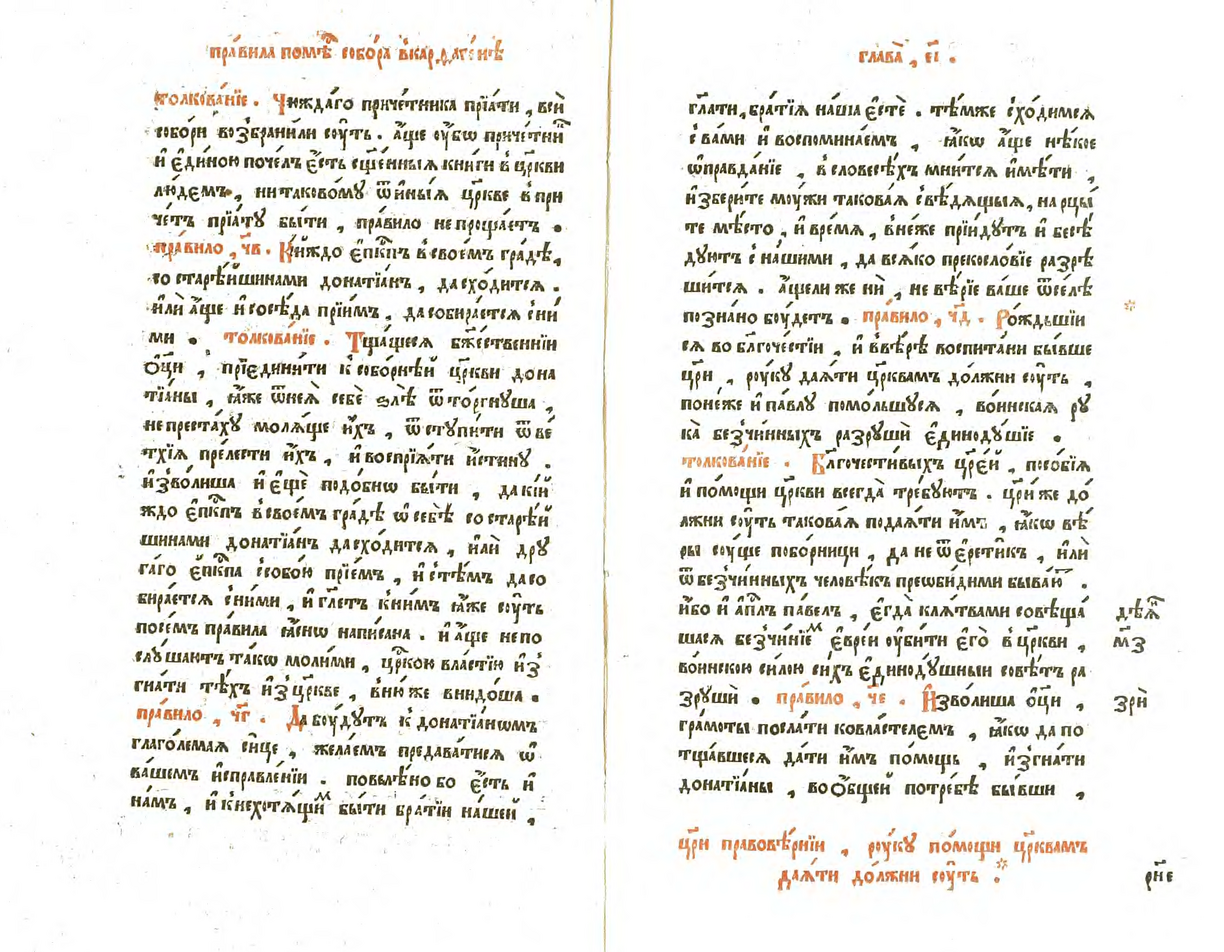 пра́вила помѣ́ст собо́ра в҆карѳаге́нѣ
толкова́нїе . Чꙋжда́го приче́тника прїѧ́ти , вси̑
собо́ри возбрани́ли сꙋ́ть . а҆́ще ѹ҆́бѡ приче́тни
и҆ є҆ди́ною поче́лъ є҆́сть сщ҃е́нныѧ кни́ги в҆ цр҃кви
лю́демъ , ни таково́мꙋ ѿ и҆ны́ѧ цр҃кве в҆ при
че́тъ прїѧ́тꙋ бы́ти , пра́вило не проща́етъ .
пра́вило , ч҃в . Кі́йждо є҆пⷭ҇кпъ в҆ свое́мъ гра́дѣ ,
со старѣ́йшинами донатїа́нъ , да схо́дитсѧ .
и҆лѝ а҆́ще и҆ сосѣ́да прїи́мъ , да собира́етсѧ с҆ ни́
ми . толкова́нїе . Тща́щесѧ бж҃е́ственнїи
ѻ҆тцы̀ , прїедини́ти к҆ собо́рнѣй цр҃кви дона
тїа́ны , ꙗ҆́же ѿ неѧ̀ себѐ ѕлѣ̀ ѿто́ргнꙋша ,
не преста́хꙋ молѧ́ще и҆́хъ , ѿстꙋпи́ти ѿ ве́
тхїѧ пре́лести и҆́хъ , и҆ воспрїѧ́ти и҆́стинꙋ .
и҆зво́лиша и҆ є҆щѐ подо́бнѡ бы́ти , да кі́й
ждо є҆пⷭ҇кпъ в҆ свое́мъ гра́дѣ ѡ҆ себѣ̀ со старѣ́й
шинами донатїа́нъ да схо́дитсѧ , и҆лѝ дрꙋ
га́го є҆пⷭ҇кпа с҆ собо́ю прїе́мъ , и҆ с҆ тѣ́мъ да со
бира́етсѧ с҆ ни́ми , и҆ гл҃етъ к҆ ни́мъ ꙗ҆́же сꙋ́ть
по се́мъ пра́вила ꙗ҆́снѡ напи́сана . и҆ а҆́ще не по
слꙋ́шаютъ та́кѡ моли́ми , цр҃кою вла́стїю и҆з̾
гна́ти тѣ́хъ и҆з̾ цр҃кве , в҆ ню́же внидо́ша .
пра́вило , ч҃г . Да бꙋ́дꙋтъ к҆ донатїа́нѡмъ
глаго́лемаѧ си́це , жела́емъ предава́тисѧ ѡ҆
ва́шемъ и҆справле́нїи . повелѣ́но бо є҆́сть и҆
на́мъ , и҆ к҆ нехотѧ́щимъ бы́ти бра́тїи на́шей ,
глава̀ , є҃і .
гл҃ати , бра́тїѧ на́ша є҆стѐ . тѣ́мже схо́димсѧ
с҆ ва́ми и҆ воспомина́емъ , ꙗ҆́кѡ а҆́ще нѣ́кое
ѡ҆правда́нїе , в҆ словесѣ́хъ мни́тсѧ и҆мѣ́ти ,
и҆збери́те мꙋ́жи такова́ѧ свѣ́дѧщыѧ , нарцы́
те мѣ́сто , и҆ вре́мѧ , в҆ не́же прїи́дꙋтъ и҆ бесѣ́
дꙋютъ с҆ на́шими , да всѧ́ко прекосло́вїе разрѣ
ши́тсѧ . а҆́щели же нѝ , невѣ́рїе ва́ше ѿсе́лѣ
позна́но бꙋ́детъ . пра́вило , ч҃д . Рожⷣьшїи
сѧ во бл҃гоче́стїи , и҆ в҆ вѣ́рѣ воспита́ни бы́вше
цр҃и , рꙋ́кꙋ даѧ́ти цр҃квамъ до́лжни сꙋ́ть ,
поне́же и҆ па́влꙋ помо́льшꙋсѧ , во́инскаѧ рꙋ
ка̀ безчи́нныхъ разрꙋшѝ є҆динодꙋ́шїе .
толкова́нїе . Бл҃гочести́выхъ цр҃е́й , посо́бїѧ
и҆ по́мощи цр҃кви всегда̀ тре́бꙋютъ . цр҃и́ же до́
лжни сꙋ́ть такова́ѧ подаѧ́ти и҆́мъ , ꙗ҆́кѡ вѣ́
ры сꙋ́ще побо́рницы , да не ѿ є҆рети́къ , и҆лѝ
ѿ безчи́нныхъ человѣ́къ преѡби́дими быва́ю .
и҆́бо и҆ а҆пⷭ҇лъ па́велъ , є҆гда̀ клѧ́твами совѣща́
шасѧ безчи́нїем є҆вре́и ѹ҆би́ти є҆го̀ в҆ цр҃кви ,
во́инскою си́лою си́хъ є҆динодꙋ́шныи совѣ́тъ ра
зрꙋшѝ . пра́вило , ч҃е . И҆зво́лиша ѻ҆тцы̀ ,
гра́моты посла́ти ко власте́лемъ , ꙗ҆́кѡ да по
тща́вшесѧ да́ти и҆́мъ по́мощь , и҆згна́ти
донатїа́ны , во ѻ҆́бщей потре́бѣ бы́вши ,
дѣѧ҃
м҃з
зрѝ
цр҃и правовѣ́рнїи , рꙋ́кꙋ по́мощи цр҃квамъ
даѧ́ти до́лжни сꙋ́ть .
рн҃е